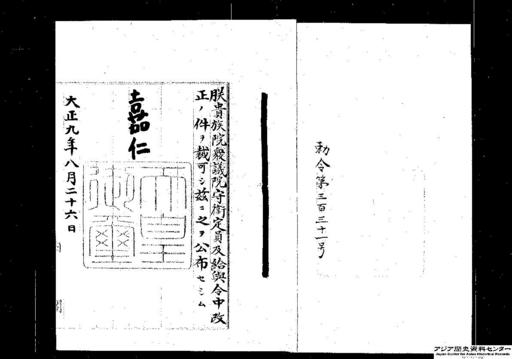 勅令第三百三十一号
朕貴族院衆議院守衛定員及給與令中改
正ノ件ヲ裁可シ茲ニ之ヲ公布セシム
嘉仁
天皇
御璽
大正九年八月二十六日
アジア歴史資料センター
Japan Center for Asian Historical Records